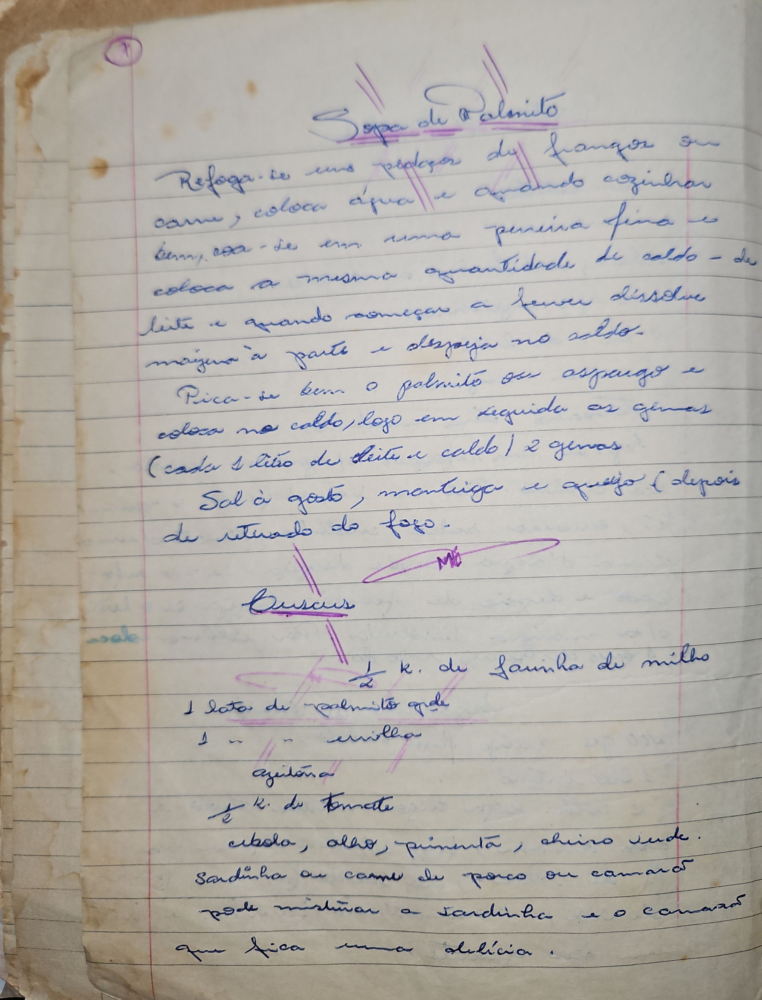 1
Sopa de Palmito
Refoga-se uns pedaços de frangos ou
carne, coloca água e quando cozinhar
bem, coa-se em uma peneira fina e
coloca a mesma quantidade de caldo - de
leite e quando começar a ferver dissolve
maizena à parte e despeja no caldo.
Pica-se bem o palmito ou aspargo e
coloca no caldo, logo em seguida as gemas
(cada 1 litro de leite e caldo) 2 gemas
Sal à gosto, manteiga e queijo (depois
de retirado do fogo.
Cuscus
1/2 K. de farinha de milho
1 lata de palmito gde
1 " " ervilha
azeitona
1/2 K. de tomate
cebola, alho, pimenta, cheiro verde.
Sardinha ou carne de porco ou camarão
pode misturar a sardinha e o camarão
que fica uma delícia.